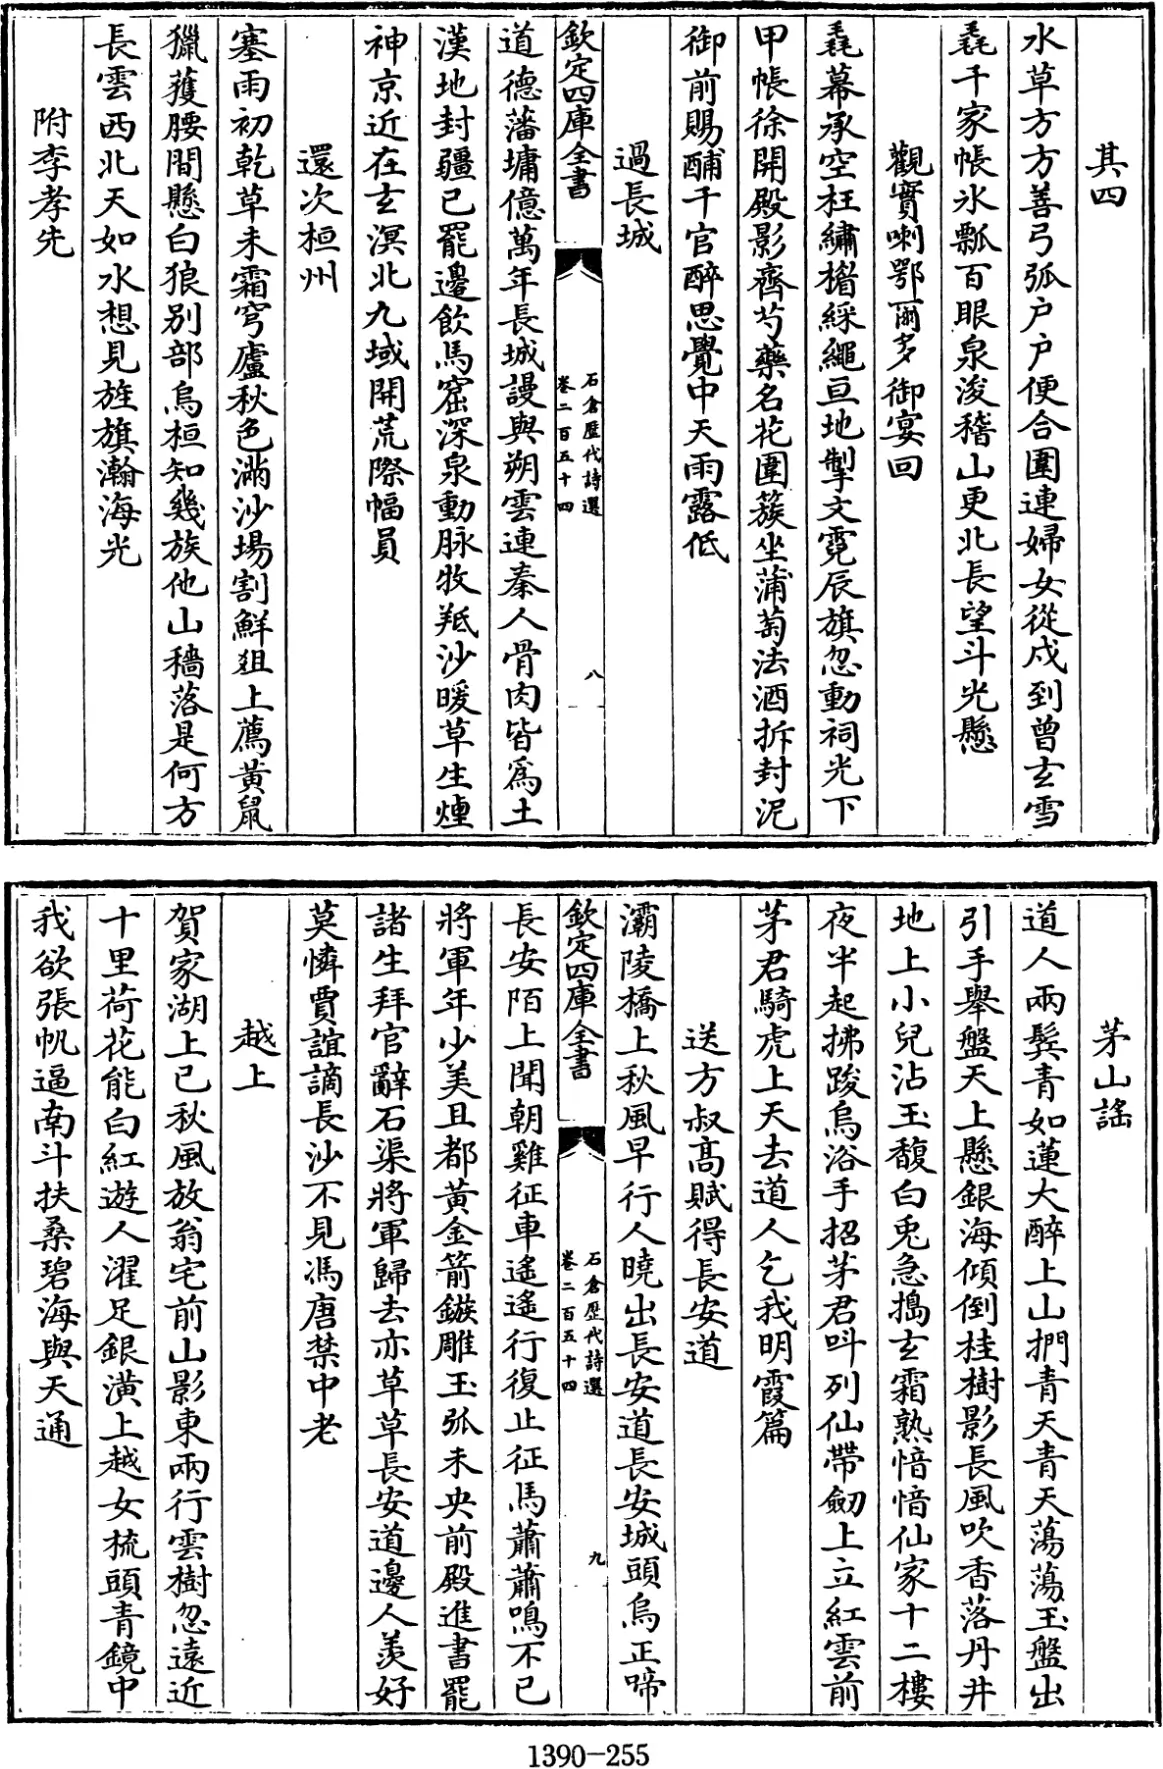 其四
水草方方善弓弧户户便合圍連婦女從戍到曾玄雪
毳千家帳氷瓢百眼泉浚稽山更北長望斗光懸
觀實喇鄂爾多御宴回
毳幕承空柱繡楣綵繩亘地掣文霓辰旗忽動祠光下
甲帳徐開殿影齊芍藥名花圍簇坐蒲萄法酒拆封泥
御前賜酺千官醉恩覺中天雨露低
過長城
欽定四庫全書
石倉歷代詩選
卷二百五十四
八
道德藩墉億萬年長城謾與朔雲連秦人骨肉皆爲土
漢地封疆已罷邊飲馬窟深泉動脉牧羝沙暖草生煙
神京近在玄溟北九域開荒際幅員
還次桓州
塞雨初乾草未霜穹廬秋色滿沙場割鮮俎上薦黃鼠
獵獲腰間懸白狼别部烏桓知幾族他山穡落是何方
長雲西北天如水想見旌旗瀚海光
附李孝先
茅山謡
道人兩鬂青如蓮大醉上山捫青天青天蕩蕩玉盤出
引手舉盤天上懸銀海傾倒桂樹影長風吹香落丹井
地上小兒沾玉馥白兎急搗玄霜熟愔愔仙家十二樓
夜半起拂踆烏浴手招茅君呌列仙帶劒上立紅雲前
茅君騎虎上天去道人乞我明霞篇
送方叔髙賦得長安道
灞陵橋上秋風早行人曉出長安道長安城頭烏正啼
欽定四庫全書
石倉歷代詩選
卷二百五十四
九
長安陌上聞朝雞征車遥遥行復止征馬蕭蕭鳴不已
將軍年少美且都黃金箭鏃雕玉弧未央前殿進書罷
諸生拜官辭石渠將軍歸去亦草草長安道邊人羨好
莫憐賈誼謫長沙不見馮唐禁中老
越上
賀家湖上已秋風放翁宅前山影東兩行雲樹忽遠近
十里荷花能白紅遊人濯足銀潢上越女梳頭青鏡中
我欲張帆逼南斗扶桑碧海與天通
1390-255